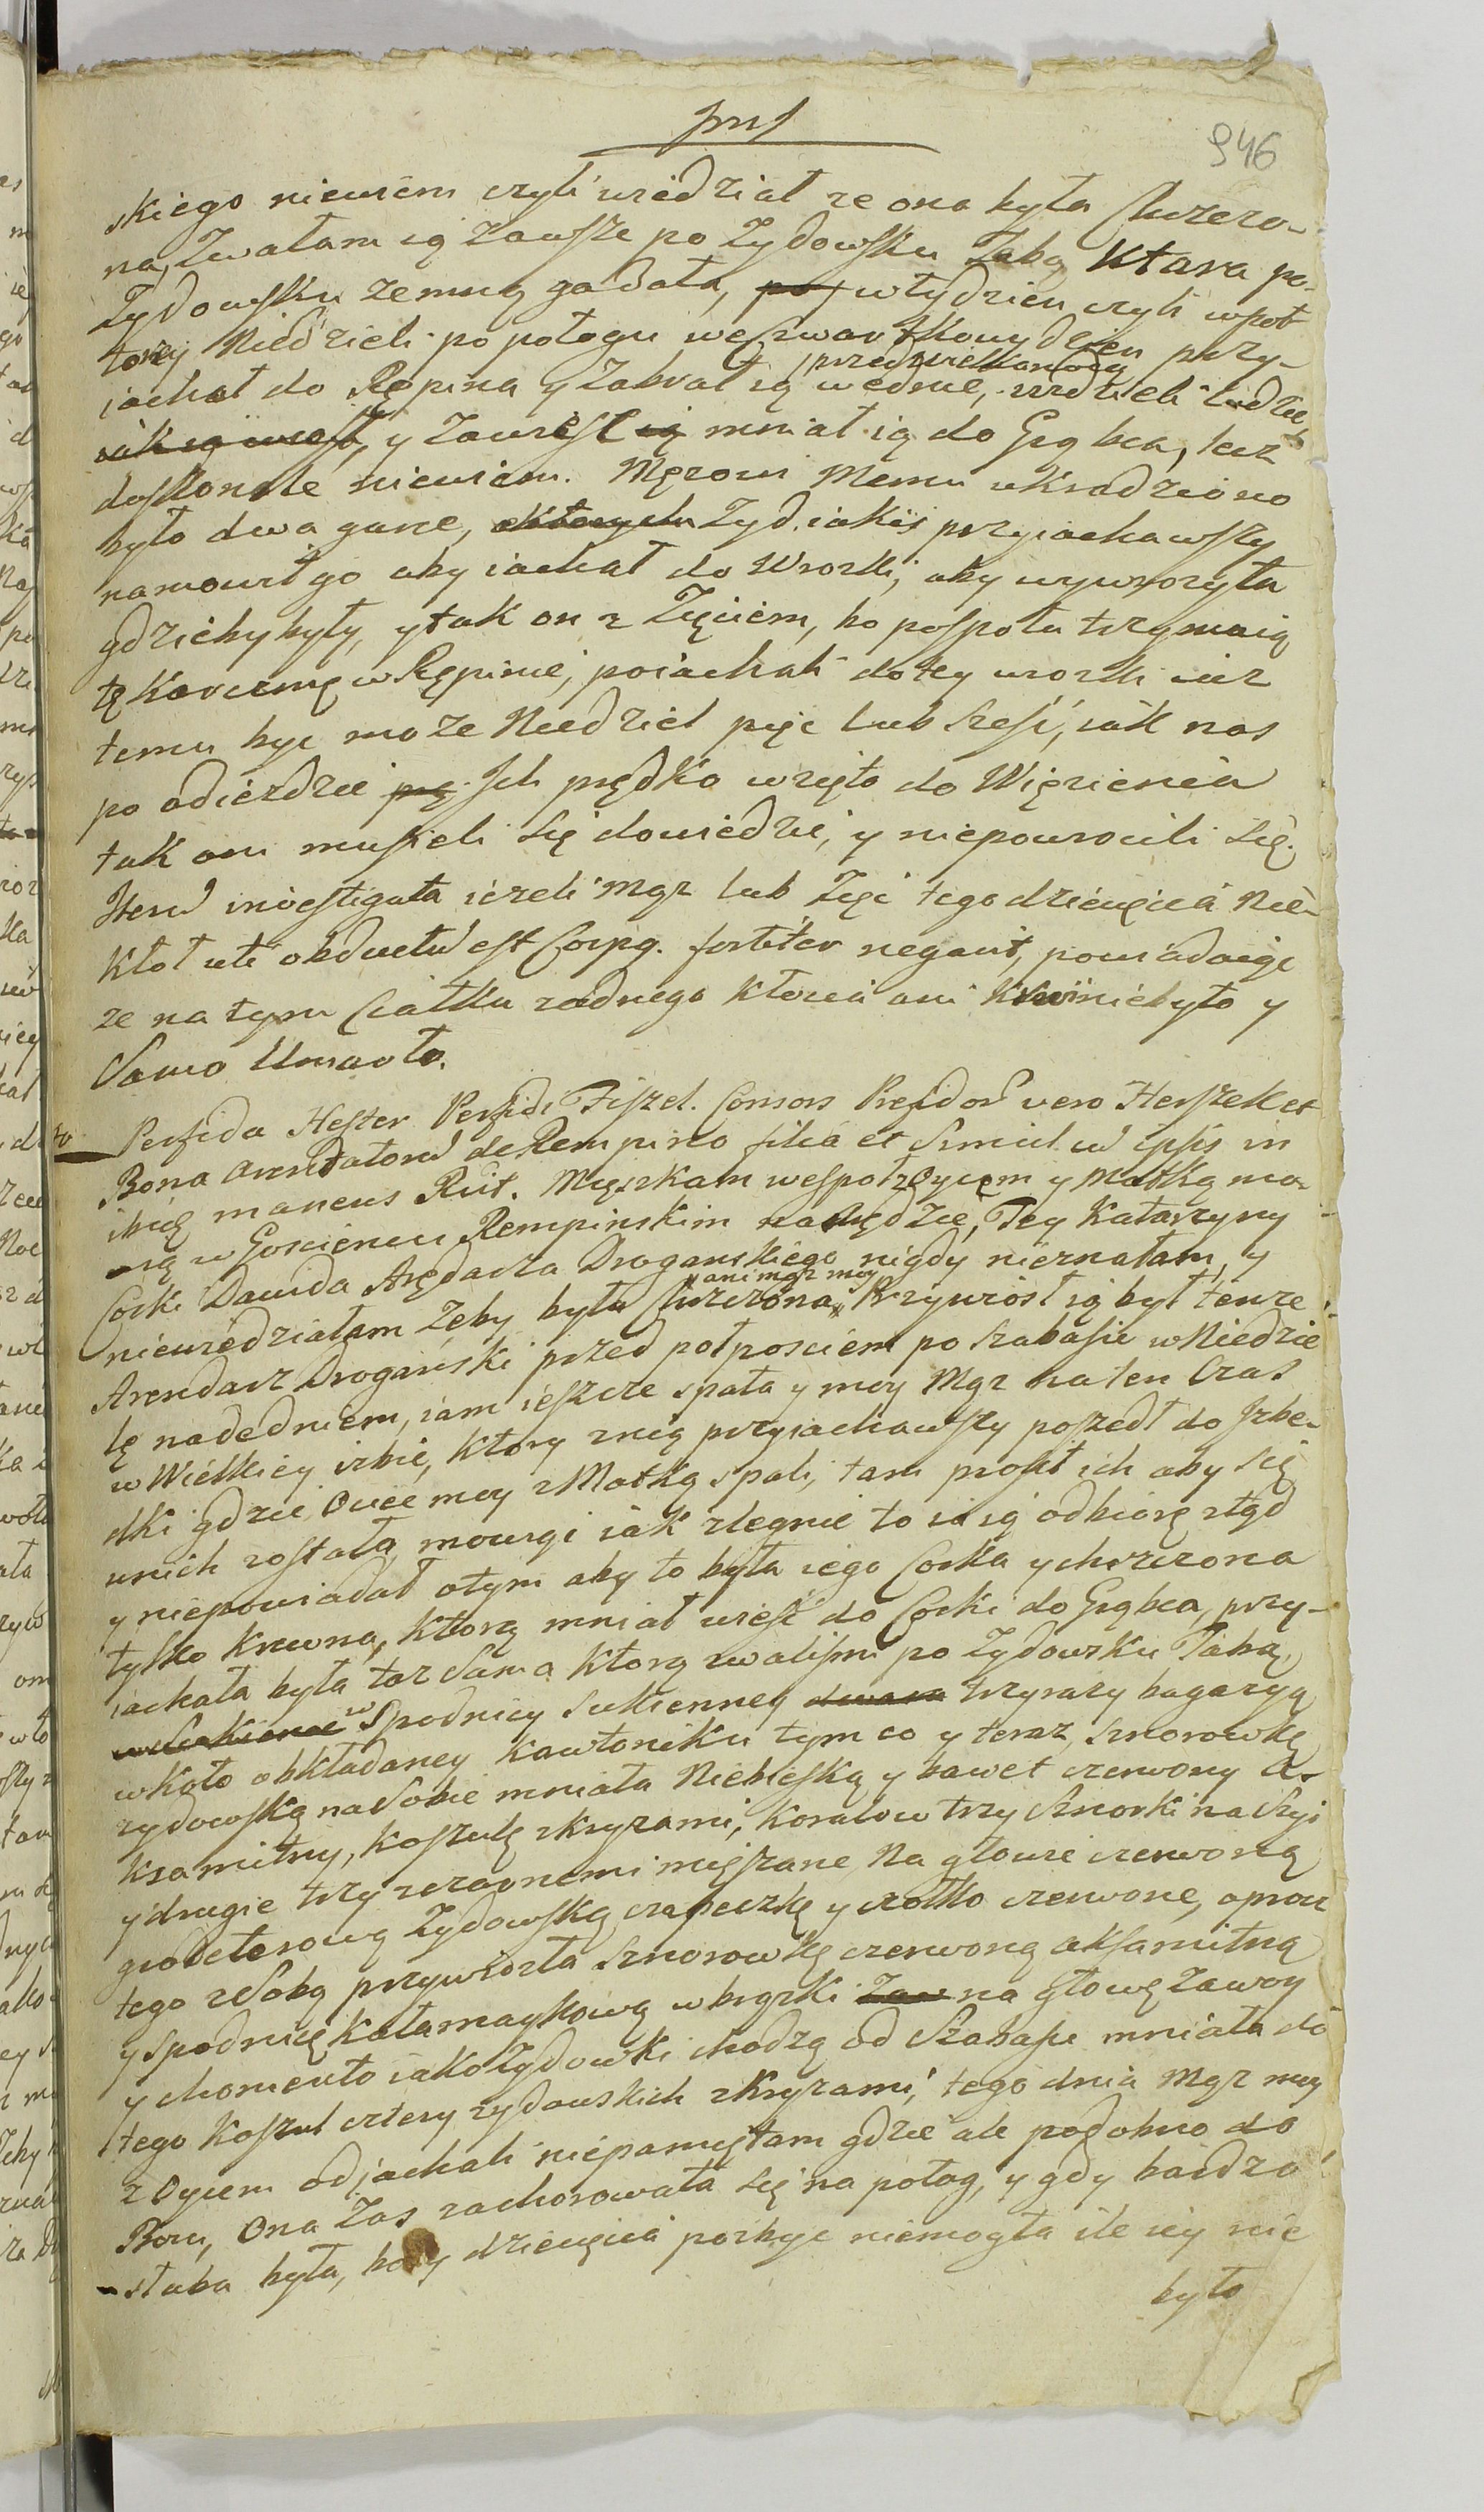 946
skiego niewiem czyli wiedział ze ona była Chrzczo-
na, Zwałam ią zawsze po Zydowsku Taba, Ktara po
Zydowsku zemną gadała, po w tydzien czyli wpoł
torey Niedzieli po połogu we Czwartkowy dzien przy-
przed Wielkanocą
iachał do Rępina y Zabrał ią wednie, widzieli ludzie,
iak ią wiesł, y zawiesl ią mniał ią do Grąbca, lecz
doskonale niewiem. Męzowi Memu ukradziono
było dwa zance, o ktorych Zyd iakiś przyiachawszy
namowił go aby iachał do Wrozki, aby wywrozyła
gdzieby były, ytak on z Zięciem, bo pospołu trzymaią
tę Karczmę w Rępinie, poiachali do tey wrozki iuż
temu byc moze Niedziel pięc lub szesc, iak nas
po odiezdzie prę Ich prędko wzięto do Więzienia
tak oni musieli się dowiedzic, y niepowrocili się.
Item investigata iezeli Mąz lub Zięć tego dziecięcia Nie
Kłoł uti obductũ est Corpq. fortiter negavit, powiadaiąc
ze na tym Ciałku zadnego kłocia ani Krwi niebyło y
Samo Umarło.
10 Perfida Hester Perfidi Fiszel Consors Perfidorũ vero Herszek et
Bona Arendatorũ de Rempino filia et Simul cũ ipsis in
ibiq manens Rñt. Mięszkam wespoł z Oycem y Matką mo-
ią w Gosciencu Rempinskim na Arędzie, Tey Katarzyny
Corki Dawida Arędarza Droganskiego nigdy nieznałam, y
ani mąz moy
niewiedziałam Zeby była Chrzczona, Przywiosł ią był tenze
Arendarz Drogański przed połposciem po Szabasie w Niedzie
lę nadedniem, iam ieszcze spała y moy Mąz na ten Czas
w Wielkiey izbie, Ktory z nią przyiachawszy poszedł do Izbe-
dki gdzie Ociec moy z Matką spali, tam prosił ich aby się
unich została mowiąc iak zlegnie to ia ią odbiorę ztąd
y niepowiadał otym aby to była iego Corka y chrzczona
tylko Krewna, Ktorą mniał wiesć do Corki do Grąbca, przy-
iachała była taz Sama Ktorą zwalismy po Zydowsku Tabą,
w Sukience w Spodnicy Sukienney dwa ra trzyrazy bagaryą
wkoło obkładaney Kawtoniku tym co y teraz, Sznorowkę
zydowską na Sobie mniała Niebieską y bawet czerwony A-
ksamitny, koszulę z kryzami, Koralow trzy Sznorki na Szyi
y drugie trzy zczarnemi mięszane Na głowie czerwoną
grodetorową Zydowską czapeczkę y czołko czerwone, oprocz
tego z Sobą przywiozła Sznorowkę czerwoną aksamitną
y Spodnicę Kałamaykową w brązki Zaw na głowę Zawoy
y chomenło iako Zydowki chodzą od Szabasu mniała do
tego Koszul cztery zydowskich z Kryzami, tego dnia Mąz moy
z Oycem odjachali niepamiętam gdzie ale podobno do
Boru, Ona Zas zachorowała się na połog, y gdy bardzo
słaba była, bo y dziecięcia pozbyc niemogła ile iey nie
było